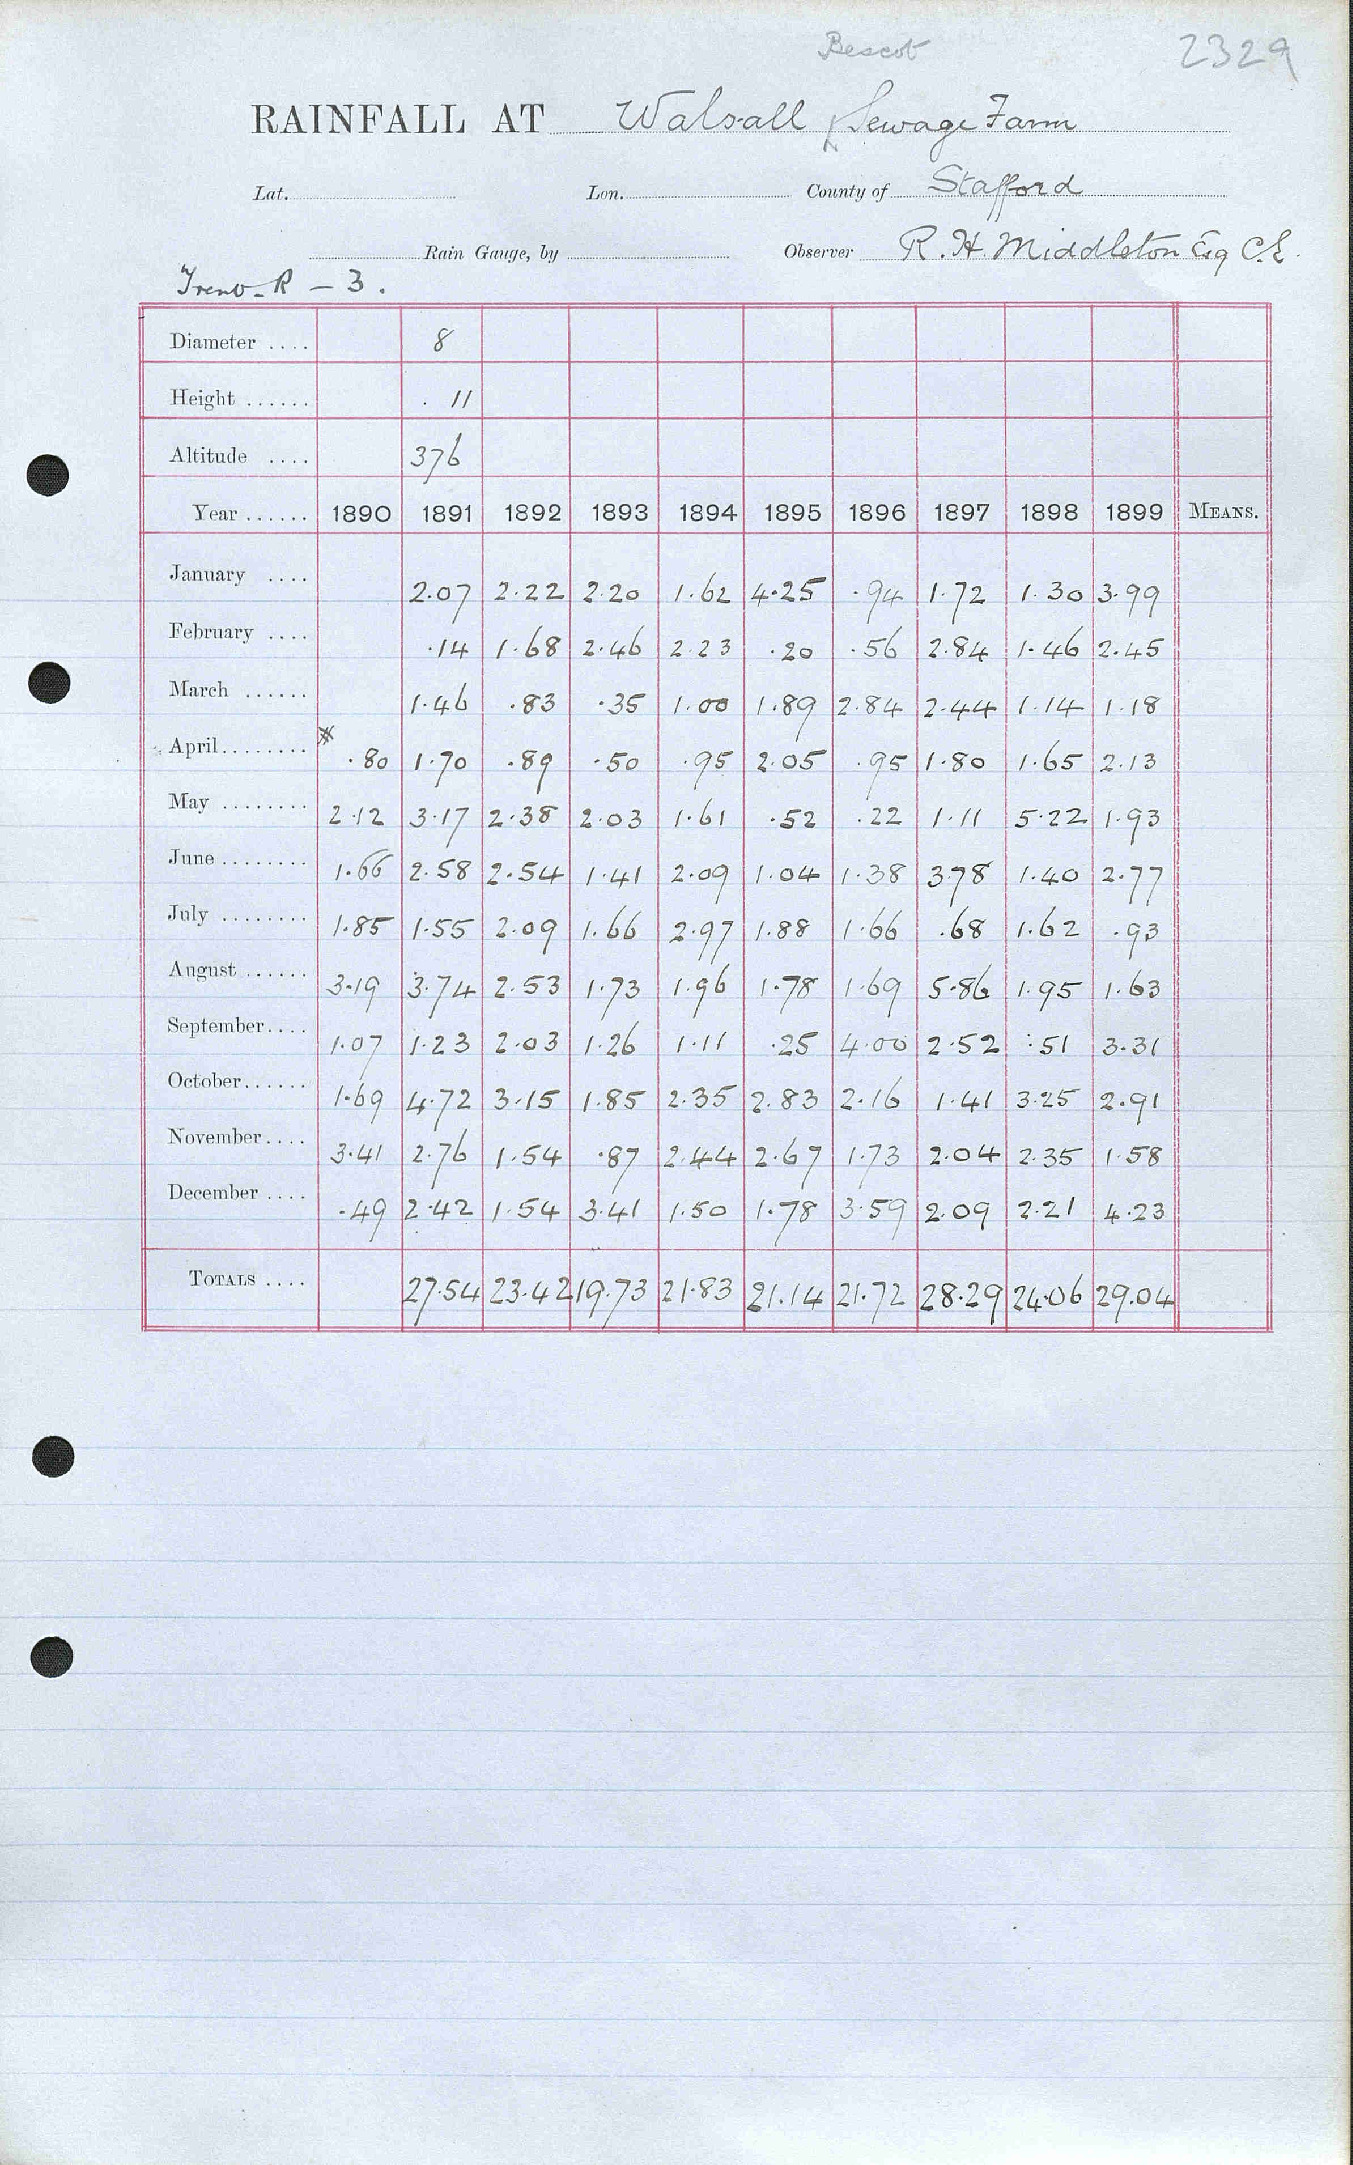 Bescot 2329
RAINFALL AT Walsall Sewage Farm
Lat. Lon. County of Stafford
Rain Gauge, by Observer R. H. Middleton Esq C.E.
Trent. R – 3.
Diameter .... 8
Height ...... . 11
Altitude .... 376
Year ...... 1890 1891 1892 1893 1894 1895 1896 1897 1898 1899 MEANS.
January .... 2.07 2.22 2.20 1.62 4.25 .94 1.72 1.30 3.99
February .... .14 1.68 2.46 2.23 .20 .56 2.84 1.46 2.45
March ...... 1.46 .83 .35 1.00 1.89 2.84 2.44 1.14 1.18
April ........ * .80 1.70 .89 .50 .95 2.05 .95 1.80 1.65 2.13
May ........ 2.12 3.17 2.38 2.03 1.61 .52 .22 1.11 5.22 1.93
June ........ 1.66 2.58 2.54 1.41 2.09 1.04 1.38 3.78 1.40 2.77
July ........ 1.85 1.55 2.09 1.66 2.97 1.88 1.66 .68 1.62 .93
August ...... 3.19 3.74 2.53 1.73 1.96 1.78 1.69 5.86 1.95 1.63
September .... 1.07 1.23 2.03 1.26 1.11 .25 4.00 2.52 .51 3.31
October ...... 1.69 4.72 3.15 1.85 2.35 2.83 2.16 1.41 3.25 2.91
November .... 3.41 2.76 1.54 .87 2.44 2.67 1.73 2.04 2.35 1.58
December .... .49 2.42 1.54 3.41 1.50 1.78 3.59 2.09 2.21 4.23
TOTALS .... 27.54 23.42 19.73 21.83 21.14 21.72 28.29 24.06 29.04